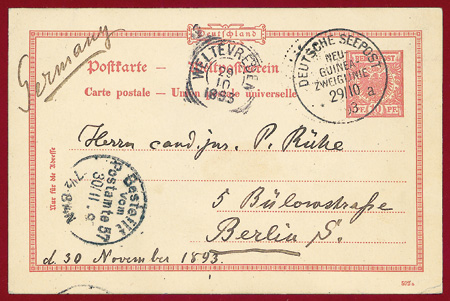 Germany
Deutschland
Postkarte — Weltpostverein
Carte postale — Union postale universelle
WELTEVREDEN
29
10
1893
DEUTSCHE SEEPOST
NEU
GUINEA
ZWEIGLINIE
29/10 a.
93
Nur für die Adresse
Herrn cand. jur. P. Rühe
5 Bülowstraße
Berlin S.
Bestellt
vom
Postamte 57
30/11. 9
7½-8¼ N
d. 30 November 1893.